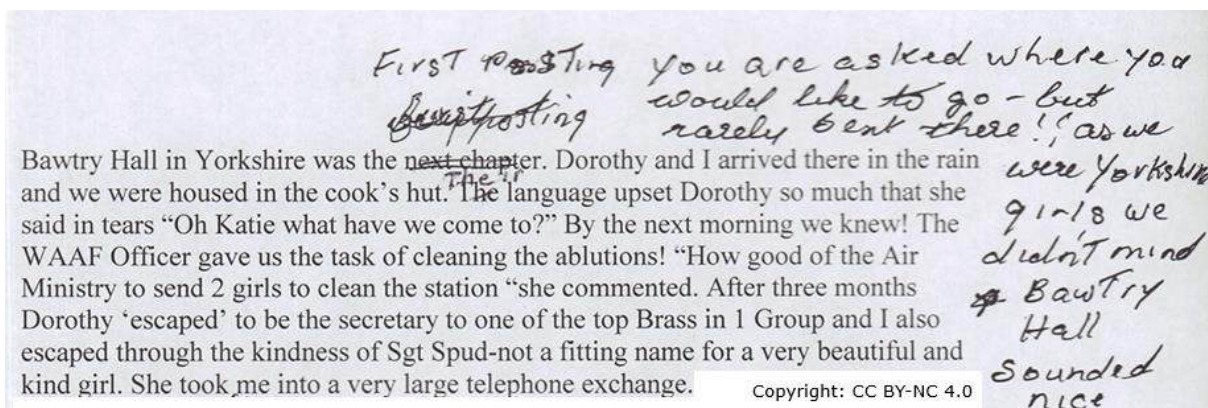 First Posting you are asked where you
posting would like to go - but
rarely sent there!! as we
were Yorkshire
girls we
didn't mind
Bawtry
Hall
sounded
nice
Bawtry Hall in Yorkshire was the next chapter. Dorothy and I arrived there in the rain
and we were housed in the cook's hut. Their The language upset Dorothy so much that she
said in tears “Oh Katie what have we come to?” By the next morning we knew! The
WAAF Officer gave us the task of cleaning the ablutions! “How good of the Air
Ministry to send 2 girls to clean the station “she commented. After three months
Dorothy ‘escaped’ to be the secretary to one of the top Brass in 1 Group and I also
escaped through the kindness of Sgt Spud-not a fitting name for a very beautiful and
kind girl. She took me into a very large telephone exchange.
Copyright: CC BY-NC 4.0